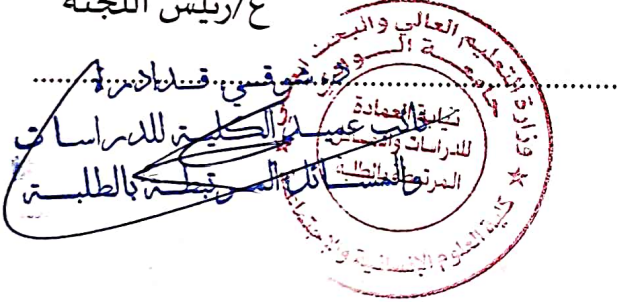 ع/رئيس اللجنة
د. شوقي قدادرة
نائب عميد الكلية للدراسات
والمسائل المرتبطة بالطلبة
وزارة التعليم العالي والبحث
جامعة الوادي
نيابة العمادة
للدراسات والمسائل
المرتبطة بالطلبة
كلية العلوم الإنسانية والاجتماعية